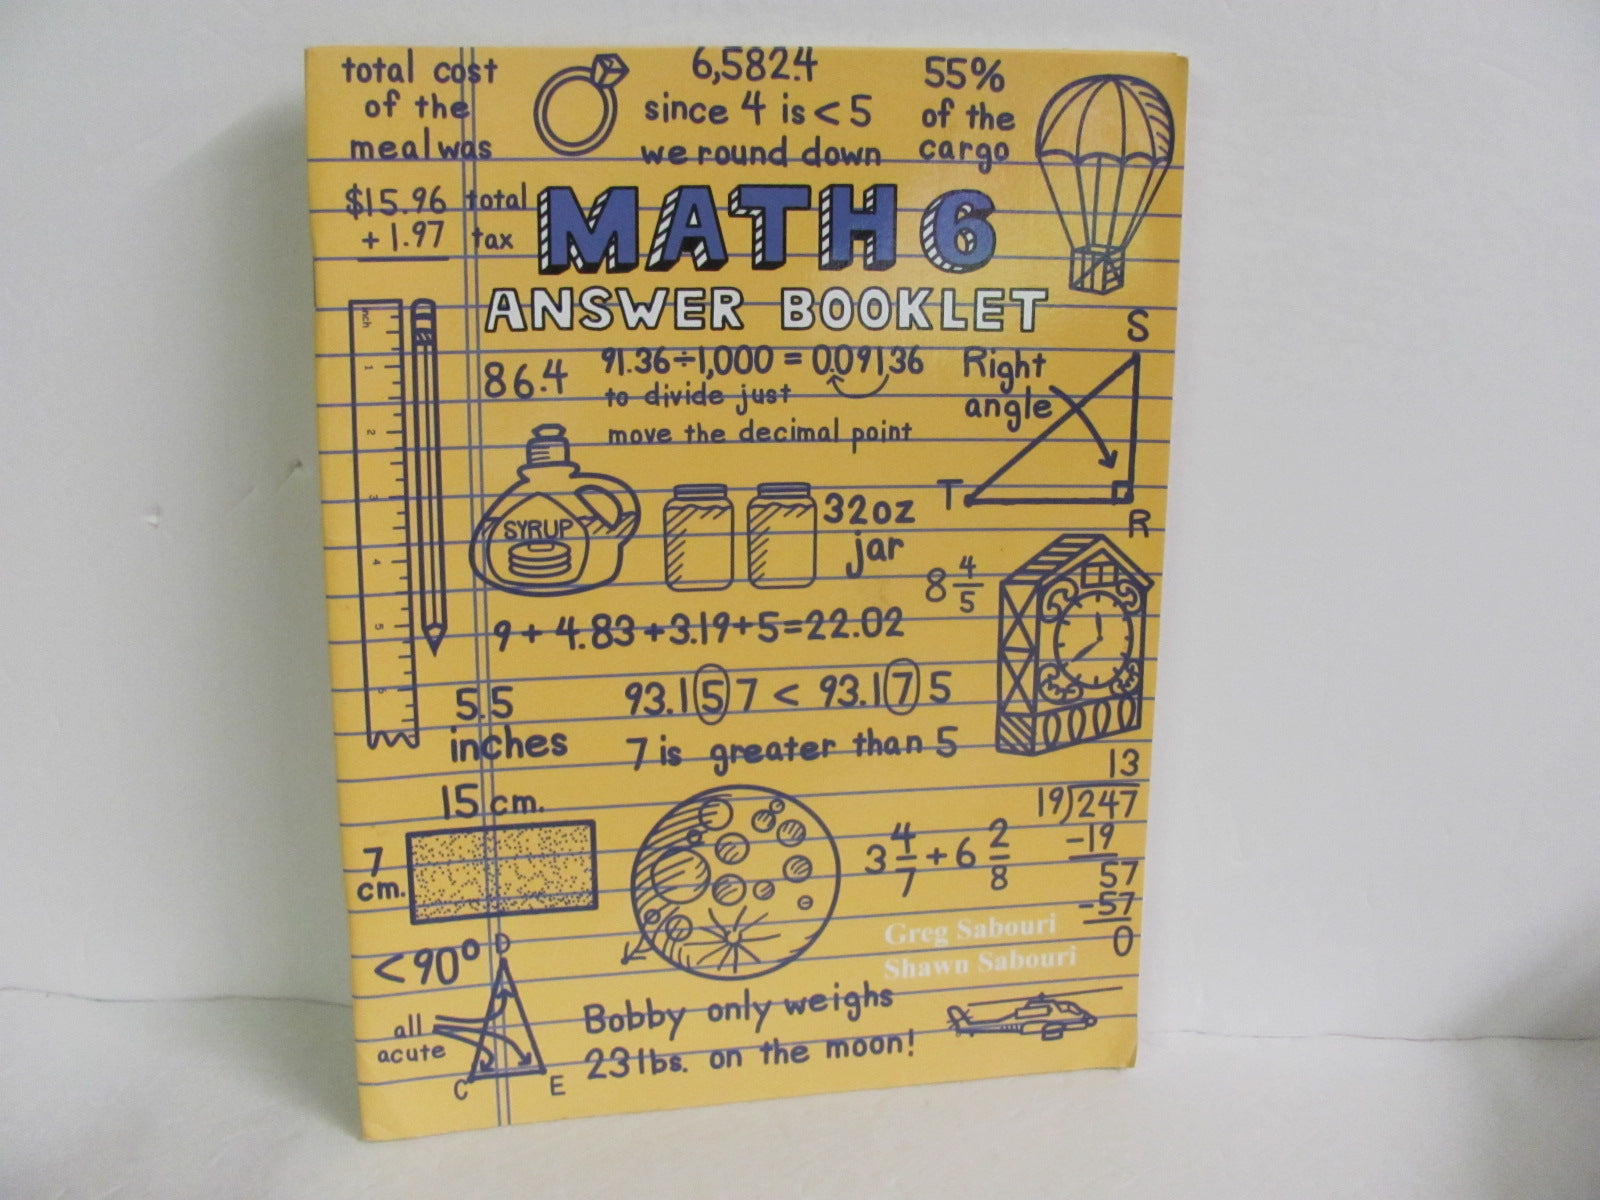 total cost
of the
meal was
$15.96 total
+ 1.97 tax
6,582.4
since 4 is < 5
we round down
55%
of the
cargo
MATH 6
ANSWER BOOKLET
inch
1
2
3
4
5
86.4
91.36÷1,000 = 0.09136
to divide just
move the decimal point
Right
angle
S
T
R
SYRUP
32oz
jar
8 4/5
9 + 4.83 + 3.19 + 5 = 22.02
5.5
inches
93.157 < 93.175
7 is greater than 5
15 cm.
7
cm.
3 4/7 + 6 2/8
13
19)247
-19
57
-57
0
Greg Sabouri
Shawn Sabouri
<90°
D
all
acute
C
E
Bobby only weighs
23 lbs. on the moon!